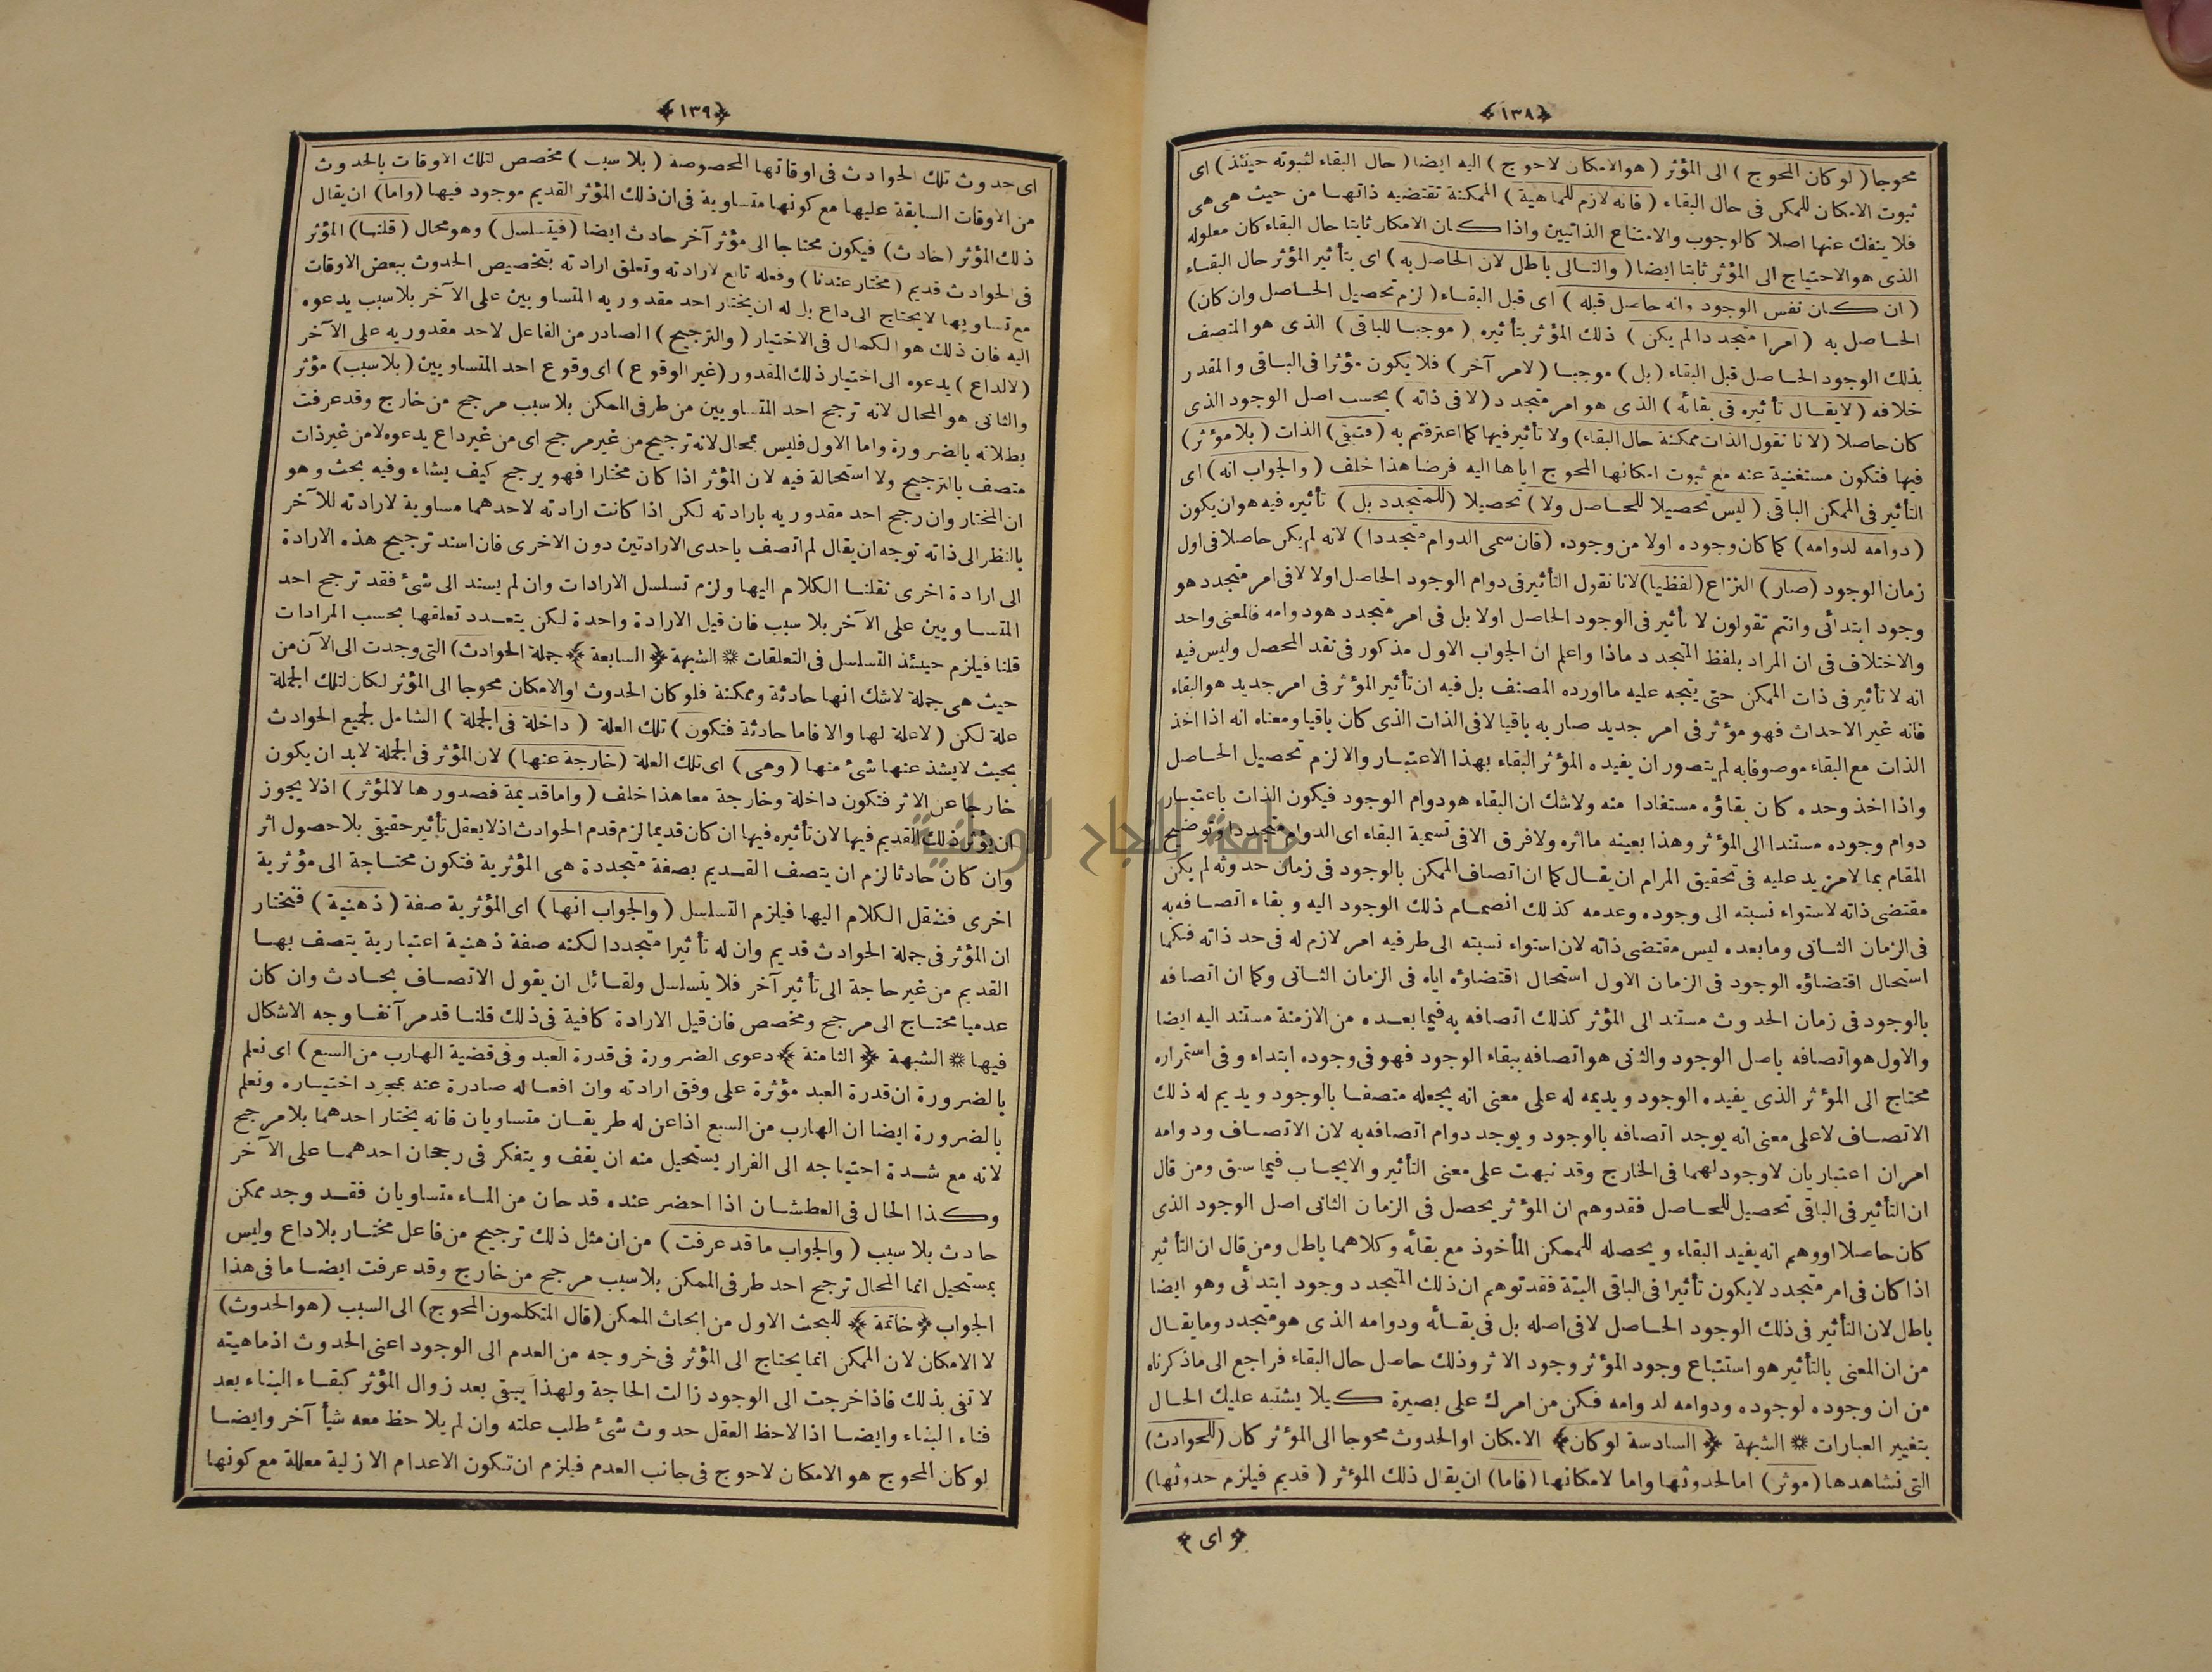 ﴿١٣٨﴾
محوجا ( لو كان المحوج ) الى المؤثر ( هو الامكان لاحوج ) اليه ايضا ( حال البقاء لثبوته حينئذ ) اى
ثبوت الامكان للممكن فى حال البقاء ( فانه لازم للماهية ) الممكنة تقتضيه ذاتهـا من حيث هى هى
فلا ينفك عنها اصلا كالوجوب والامتناع الذاتيين واذا كـان الامكان ثابتا حال البقاء كان معلوله
الذى هو الاحتياج الى المؤثر ثابتا ايضا ( والتـالى باطل لان الحاصل به ) اى بتأثير المؤثر حال البقـاء
( ان كـان نفس الوجود وانه حاصل قبله ) اى قبل البقـاء ( لزم تحصيل الحـاصل وان كان)
الحـاصل به ( امرا متجددا لم يكن ) ذلك المؤثر بتأثيره ( موجبـا للباقى ) الذى هو المتصف
بذلك الوجود الحـاصل قبل البقاء ( بل ) موجبـا ( لامر آخر ) فلا يكون مؤثرا فى البـاقى والمقدر
خلافه ( لا يقـال تأثيره فى بقائه ) الذى هو امر متجدد ( لا فى ذاته ) بحسب اصل الوجود الذى
كان حاصلا ( لانا نقول الذات ممكنة حال البقاء ) ولا تأثير فيها كما اعترفتم به ( فتبقى ) الذات ( بلا مؤثر )
فيها فتكون مستغنية عنه مع ثبوت امكانها المحوج اياها اليه فرضا هذا خلف ( والجواب انه ) اى
التأثير فى الممكن الباقى ( ليس تحصيلا للحـاصل ولا ) تحصيلا ( للمتجدد بل ) تأثيره فيه هو ان يكون
( دوامه لدوامه ) كما كان وجوده اولا من وجوده ( فان سمى الدوام متجددا ) لانه لم يكن حاصلا فى اول
زمان الوجود ( صار ) النزاع ( لفظيا ) لانا نقول التأثير فى دوام الوجود الحاصل اولا لا فى امر متجدد هو
وجود ابتدائى وانتم تقولون لا تأثير فى الوجود الحاصل اولا بل فى امر متجدد هو دوامه فالمعنى واحد
والاختلاف فى ان المراد بلفظ المتجدد ماذا واعلم ان الجواب الاول مذكور فى نقد المحصل وليس فيه
انه لا تأثير فى ذات الممكن حتى يتجه عليه ما اورده المصنف بل فيه ان تأثير المؤثر فى امر جديد هو البقاء
فانه غير الاحداث فهو مؤثر فى امر جديد صار به باقيا لا فى الذات الذى كان باقيا ومعناه انه اذا اخذ
الذات مع البقاء موصوفا به لم يتصور ان يفيده المؤثر البقاء بهذا الاعتبـار والا لزم تحصيل الحـاصل
واذا اخذ وحده كان بقاؤه مستفادا منه ولاشك ان البقاء هو دوام الوجود فيكون الذات باعتبـار
دوام وجوده مستندا الى المؤثر وهذا بعينه ما اثره ولا فرق الا فى تسمية البقاء اى الدوام متجددا وتوضيح
المقام بما لا مزيد عليه فى تحقيق المرام ان يقـال كما ان اتصاف الممكن بالوجود فى زمان حدوثه لم يكن
مقتضى ذاته لاستواء نسبته الى وجوده وعدمه كذلك انضمـام ذلك الوجود اليه وبقاء اتصـافه به
فى الزمان الثـانى وما بعده ليس مقتضى ذاته لان استواء نسبته الى طرفيه امر لازم له فى حد ذاته فكما
استحال اقتضاؤه الوجود فى الزمان الاول استحال اقتضاؤه اياه فى الزمان الثـانى وكما ان اتصافه
بالوجود فى زمان الحدوث مستند الى المؤثر كذلك اتصافه به فيما بعـده من الازمنة مستند اليه ايضا
والاول هو اتصافه باصل الوجود والثانى هو اتصافه ببقاء الوجود فهو فى وجوده ابتداء وفى استمراره
محتاج الى المؤثر الذى يفيده الوجود ويديمه له على معنى انه يجعله متصفـا بالوجود ويديم له ذلك
الاتصـاف لا على معنى انه يوجد اتصافه بالوجود ويوجد دوام اتصافه به لان الاتصـاف ودوامه
امران اعتباريان لا وجود لهما فى الخارج وقد نبهت على معنى التأثير والايجـاب فيما سبق ومن قال
ان التأثير فى الباقى تحصيل للحـاصل فقد وهم ان المؤثر يحصل فى الزمان الثانى اصل الوجود الذى
كان حاصلا او وهم انه يفيد البقاء ويحصله للممكن المأخوذ مع بقائه وكلاهما باطل ومن قال ان التأثير
اذا كان فى امر متجدد لا يكون تأثيرا فى الباقى البتة فقد توهم ان ذلك المتجدد وجود ابتدائى وهو ايضا
باطل لان التأثير فى ذلك الوجود الحـاصل لا فى اصله بل فى بقـائه ودوامه الذى هو متجدد وما يقـال
من ان المعنى بالتأثير هو استتباع وجود المؤثر وجود الاثر وذلك حاصل حال البقاء فراجع الى ما ذكرناه
من ان وجوده لوجوده ودوامه لدوامه فكن من امرك على بصيرة كيلا يشتبه عليك الحـال
بتغيير العبارات ۞ الشبهة ﴿ السادسة لو كان ﴾ الامكان او الحدوث محوجا الى المؤثر كان ( للحوادث )
التى نشاهدها ( مؤثر ) اما لحدوثها واما لامكانها ( فاما ) ان يقال ذلك المؤثر ( قديم فيلزم حدوثها )
﴿ اى ﴾
﴿١٣٩﴾
اى حدوث تلك الحوادث فى اوقاتها المخصوصة ( بلا سبب ) مخصص لتلك الاوقات بالحدوث
من الاوقات السابقة عليها مع كونها متساوية فى ان ذلك المؤثر القديم موجود فيها ( واما ) ان يقال
ذلك المؤثر ( حادث ) فيكون محتاجا الى مؤثر آخر حادث ايضا ( فيتسلسل ) وهو محال ( قلنـا ) المؤثر
فى الحوادث قديم ( مختار عندنا ) وفعله تابع لارادته وتعلق ارادته بتخصيص الحدوث ببعض الاوقات
مع تساويها لا يحتاج الى داع بل له ان يختار احد مقدوريه المتساويين على الآخر بلا سبب يدعوه
اليه فان ذلك هو الكمال فى الاختيار ( والترجيح ) الصادر من الفاعل لاحد مقدوريه على الآخر
( لا لداع ) يدعوه الى اختيار ذلك المقدور ( غير الوقوع ) اى وقوع احد المتساويين ( بلا سبب ) مؤثر
والثانى هو المحال لانه ترجح احد المتساويين من طرفى الممكن بلا سبب مرجح من خارج وقد عرفت
بطلانه بالضرورة واما الاول فليس بمحال لانه ترجيح من غير مرجح اى من غير داع يدعوه لا من غير ذات
متصف بالترجيح ولا استحالة فيه لان المؤثر اذا كان مختارا فهو يرجح كيف يشاء وفيه بحث وهو
ان المختار وان رجح احد مقدوريه بارادته لكن اذا كانت ارادته لاحدهما مساوية لارادته للآخر
بالنظر الى ذاته توجه ان يقال لم اتصف باحدى الارادتين دون الاخرى فان اسند ترجيح هذه الارادة
الى ارادة اخرى نقلنـا الكلام اليها ولزم تسلسل الارادات وان لم يسند الى شئ فقد ترجح احد
المتسـاويين على الآخر بلا سبب فان قيل الارادة واحدة لكن يتعـدد تعلقها بحسب المرادات
قلنا فيلزم حينئذ التسلسل فى التعلقات ۞ الشبهة ﴿ السابعة ﴾ جملة الحوادث ) التى وجدت الى الآن من
حيث هى جملة لاشك انها حادثة وممكنة فلو كان الحدوث او الامكان محوجا الى المؤثر لكان لتلك الجملة
علة لكن ( لا علة لها والا فاما حادثة فتكون ) تلك العلة ( داخلة فى الجملة ) الشامل لجميع الحوادث
بحيث لا يشذ عنها شئ منها ( وهى ) اى تلك العلة ( خارجة عنها ) لان المؤثر فى الجملة لابد ان يكون
خارجا عن الاثر فتكون داخلة وخارجة معا هذا خلف ( واما قديمة فصدورها لا لمؤثر ) اذ لا يجوز
ان يؤثر ذلك القديم فيها لان تأثيره فيها ان كان قديما لزم قدم الحوادث اذ لا يعقل تأثير حقيقى بلا حصول اثر
وان كان حادثا لزم ان يتصف القـديم بصفة متجددة هى المؤثرية فتكون محتـاجة الى مؤثرية
اخرى فننقل الكلام اليها فيلزم التسلسل ( والجواب انها ) اى المؤثرية صفة ( ذهنية ) فنختار
ان المؤثر فى جملة الحوادث قديم وان له تأثيرا متجددا لكنه صفة ذهنية اعتبارية يتصف بهـا
القديم من غير حاجة الى تأثير آخر فلا يتسلسل ولقـائل ان يقول الاتصـاف بحـادث وان كان
عدميا محتـاج الى مرجح ومخصص فان قيل الارادة كافية فى ذلك قلنـا قد مر آنفـا وجه الاشكال
فيها ۞ الشبهة ﴿ الثامنة ﴾ دعوى الضرورة فى قدرة العبد وفى قضية الهارب من السبع ) اى نعلم
بالضرورة ان قدرة العبد مؤثرة على وفق ارادته وان افعـاله صادرة عنه بمجرد اختيـاره ونعلم
بالضرورة ايضا ان الهارب من السبع اذا عن له طريقـان متساويان فانه يختار احدهما بلا مرجح
لانه مع شـدة احتياجه الى الفرار يستحيل منه ان يقف ويتفكر فى رجحان احدهمـا على الآخر
وكـذا الحال فى العطشـان اذا احضر عنده قدحان من المـاء متساويان فقـد وجد ممكن
حادث بلا سبب ( والجواب ما قد عرفت ) من ان مثل ذلك ترجيح من فاعل مختـار بلا داع وليس
بمستحيل انما المحال ترجح احد طرفى الممكن بلا سبب مرجح من خارج وقد عرفت ايضـا ما فى هذا
الجواب ﴿ خاتمة ﴾ للبحث الاول من ابحاث الممكن ( قال المتكلمون المحوج ) الى السبب ( هو الحدوث )
لا الامكان لان الممكن انما يحتاج الى المؤثر فى خروجه من العدم الى الوجود اعنى الحدوث اذ ماهيته
لا تفى بذلك فاذا خرجت الى الوجود زالت الحاجة ولهذا يبقى بعد زوال المؤثر كبقـاء البنـاء بعد
فناء البنـاء وايضـا اذا لاحظ العقل حدوث شئ طلب علته وان لم يلاحظ معه شيأ آخر وايضـا
لو كان المحوج هو الامكان لاحوج فى جانب العدم فيلزم ان تكون الاعدام الازلية معللة مع كونها
جامعة النجاح الوطنية